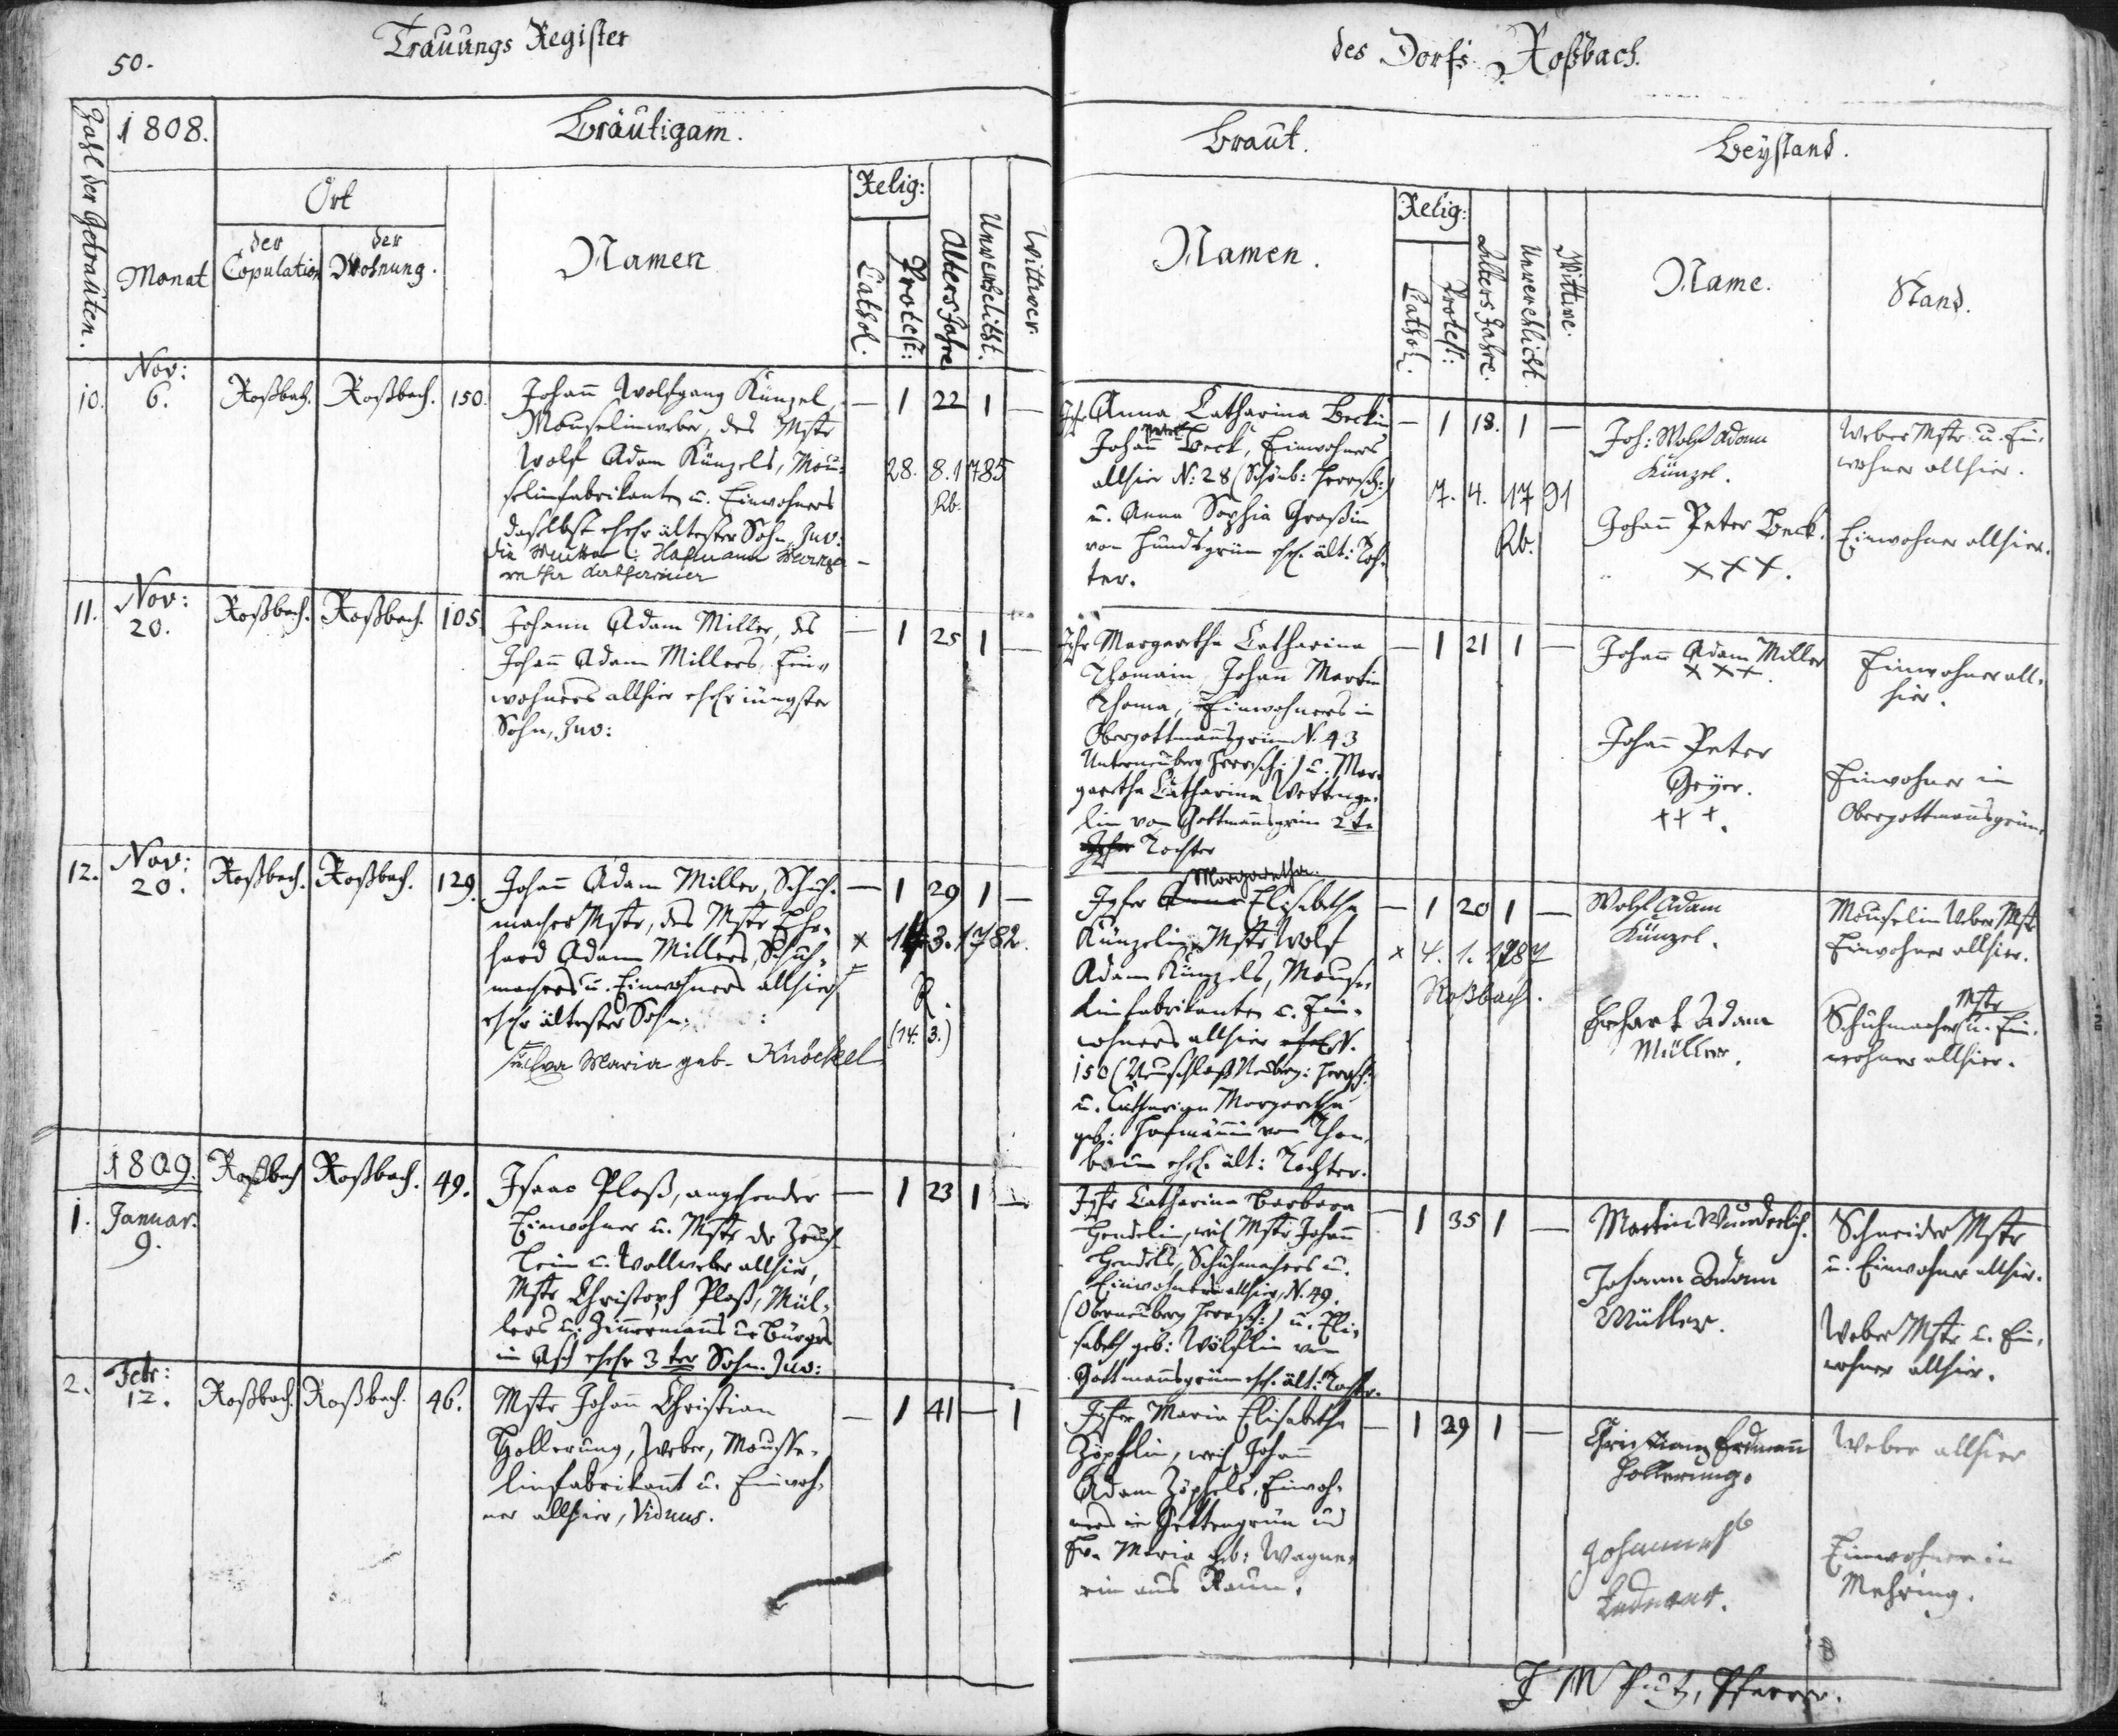 50.
Trauungs Register
des Dorfs Roßbach.
Zahl der Getrauten.
1808.
Monat
Bräutigam.
Ort
der Copulation
der Wohnung.
Namen
Relig:
Cathol.
Protest:
Alters Jahre
Unverehelicht.
Wittwer.
Braut.
Namen.
Relig:
Cathol.
Protest:
Alters Jahre.
Unverehlicht.
Wittwe.
Beystand.
Name.
Stand.
10.
Nov:
6.
Roßbach.
Roßbach.
150.
Johann Wolfgang Künzel,
Mouselinweber, des Mstr
Wolf Adam Künzels, Mou-
selinfabrikanten u. Einwohners
daselbst ehel. ältester Sohn, Juv:
die Mutter: Hofmann Marga-
retha Katharina
— 1 22 1 —
28. 8. 1785
Rb.
Jfr Anna Catharina Beckin
Johann Peter Beck, Einwohners
allhier N: 28 (Schönb: Herrsch:)
u. Anna Sophia Großin
von Hundsgrün ehel. ält: Toch-
ter.
— 1 18. 1 —
7. 4. 1791
Rb.
Joh: Wolf Adam
Künzel.
Weber Mstr u. Ein-
wohner allhier.
Johann Peter Beck.
XXX.
Einwohner allhier.
11.
Nov:
20.
Roßbach.
Roßbach.
105
Johann Adam Miller, des
Johann Adam Millers, Ein-
wohners allhier ehel. jüngster
Sohn, Juv:
— 1 25 1 —
Jfr Margaretha Catharina
Thomain, Johann Martin
Thoma, Einwohners in
Obergottmannsgrün N. 43
Unterneuberg Herrsch:) u. Mar-
garetha Catharina Wettenge-
lin von Gottmannsgrün 2te
Tochter
— 1 21 1 —
Johann Adam Miller
XXX.
Einwohner all-
hier.
Johann Peter
Geÿer.
+++.
Einwohner in
Obergottmannsgrün
12.
Nov:
20.
Roßbach.
Roßbach.
129.
Johann Adam Miller, Schuh-
macher Mstr, des Mstr Ehr-
hard Adam Millers, Schuh-
machers u. Einwohners allhier
ehel. ältester Sohn.
u. Eva Maria geb. Knöckel
— 1 29 1 —
x 14. 3. 1782.
R.
(14. 3.)
Margaretha
Jgfer Anna Elisabetha
Künzelin, Mstr Wolf
Adam Künzels, Mouse-
linfabrikanten u. Ein-
wohners allhier N.
150 (Neuschloß Neuberg: Herrsch:
u. Catharina Margaretha
geb: Hofmännin von Thon-
brunn ehel. ält: Tochter.
— 1 20 1 —
x 4. 1. 1787
Roßbach.
Wolf Adam
Künzel.
Mouselin Weber Mstr
Einwohner allhier.
Erhart Adam
Müller.
Schuhmacher Mstr u. Ein-
wohner allhier.
1809.
1.
Januar.
9.
Roßbach
Roßbach.
49.
Isaac Ploß, angehender
Einwohner u. Mstr der Zeuch-
Lein u. Wollweber allhier,
Mstr Christoph Ploß, Mül-
lers u. Zimmermanns u. Bürgers
in Asch ehel. 3ter Sohn. Juv:
— 1 23 1 —
Jgfr Catharina Barbara
Hendelin, weil. Mstr Johann
Hendels, Schuhmachers u.
Einwohners allhier, N. 49.
(Oberneuberg Herrsch:) u. Eli-
sabeth geb: Wölflin von
Gottmannsgrün ehel. ält: Tochter.
— 1 35 1 —
Martin Wunderlich.
Schneider Mstr
u. Einwohner allhier.
Johann Adam
Müller.
Weber Mstr u. Ein-
wohner allhier.
2.
Febr:
12.
Roßbach.
Roßbach.
46.
Mstr Johann Christian
Hollerung, Weber, Mousse-
linfabrikant u. Einwoh-
ner allhier, Viduus.
— 1 41 — 1
Jgfer Maria Elisabetha
Zöpflin, weil. Johann
Adam Zöpfels, Einwoh-
ners in Gettengrün und
Fr. Maria geb: Wagne-
rin aus Raun.
— 1 29 1 —
Christian Erdmann
Hollerung.
Weber allhier
Johannes
Einwohner in
Mehring.
Pfarrer.